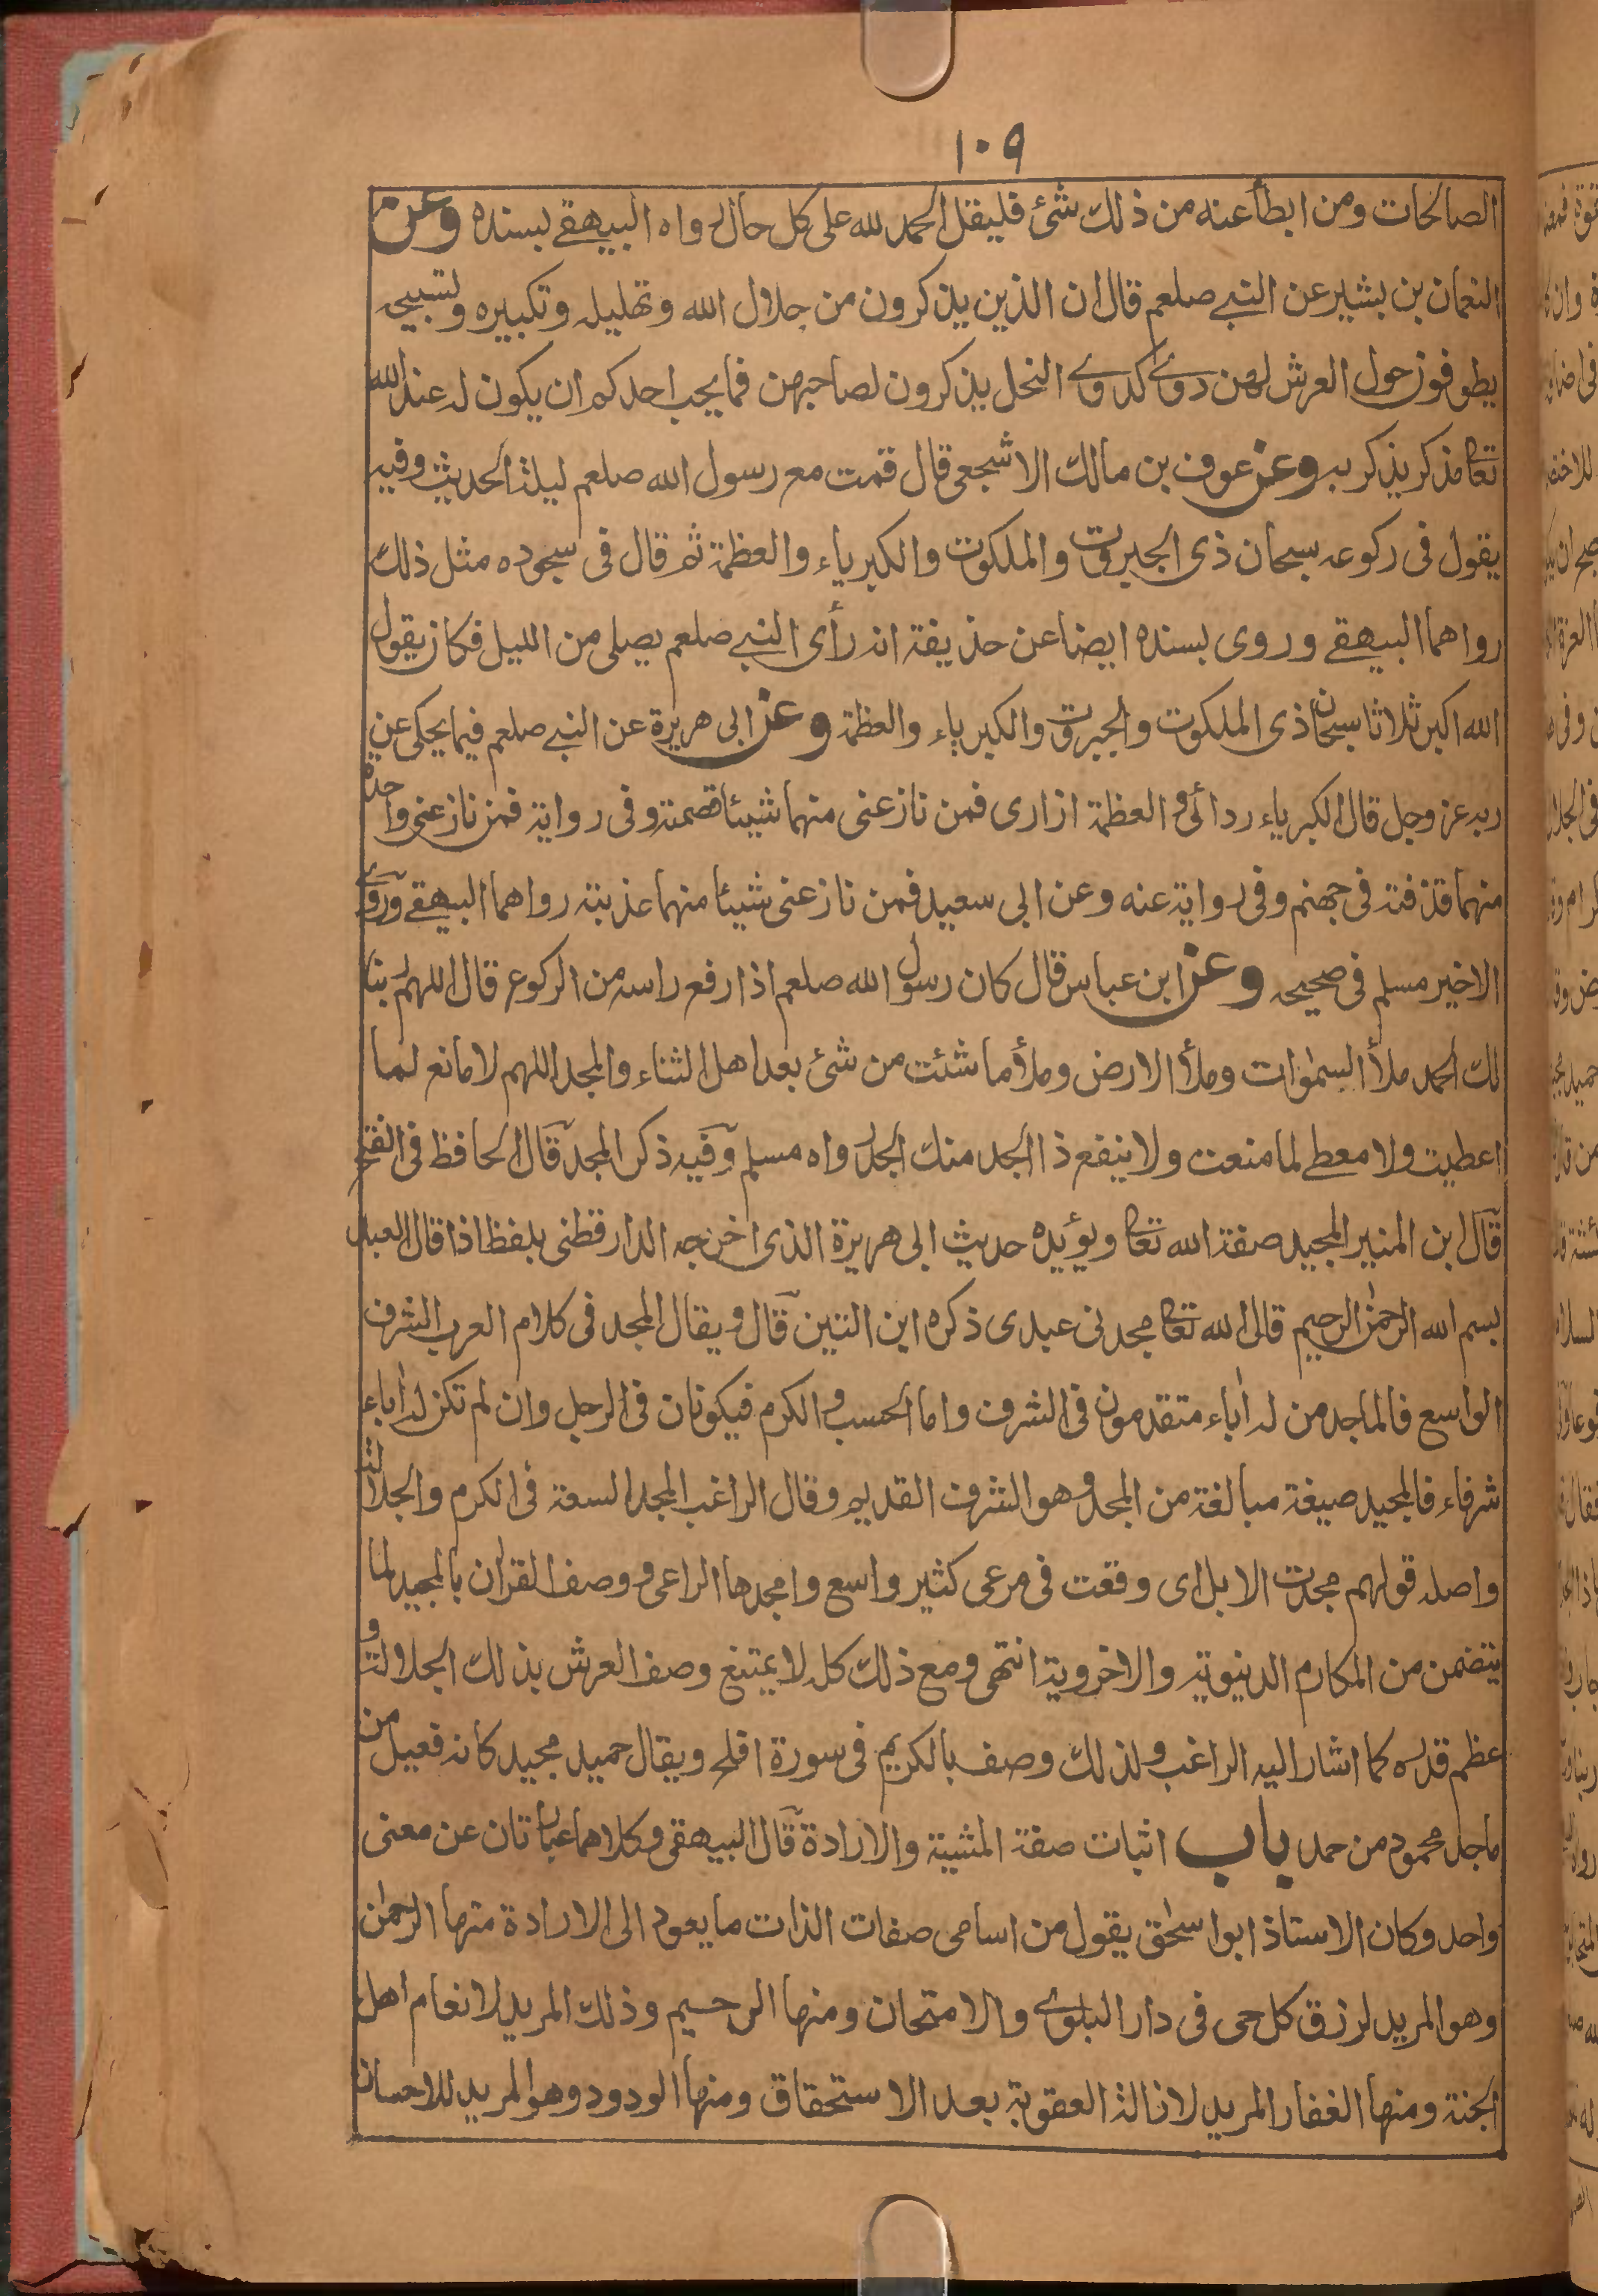 ١٠٩
الصالحات ومن ابطأ عنه من ذلك شئ فليقل الحمد لله على كل حال رواه البيهقي بسنده وعن
النعمان بن بشير عن النبي صلعم قال ان الذين يذكرون من جلال الله وتهليله وتكبيره وتسبيحه
يطوفون حول العرش لهن دوي كدوي النحل يذكرون لصاحبهن فما يحب احدكم ان يكون له عند الله
تعالى مذكر يذكر به وعن عوف بن مالك الاشجعي قال قمت مع رسول الله صلعم ليلة الحديث وفيه
يقول فى ركوعه سبحان ذى الجبروت والملكوت والكبرياء والعظمة ثم قال فى سجوده مثل ذلك
رواهما البيهقي وروى بسنده ايضا عن حذيفة انه رأى النبي صلعم يصلى من الليل فكان يقول
الله اكبر ثلاثا سبحان ذى الملكوت والجبروت والكبرياء والعظمة وعن ابى هريرة عن النبي صلعم فيما يحكى عن
ربه عز وجل قال الكبرياء ردائى والعظمة ازارى فمن نازعنى منهما شيئا قصمته وفى رواية فمن نازعنى واحدة
منهما قذفته فى جهنم وفى رواية عنه وعن ابى سعيد فمن نازعنى شيئا منهما عذبته رواهما البيهقي وروى
الاخير مسلم فى صحيحه وعن ابن عباس قال كان رسول الله صلعم اذا رفع راسه من الركوع قال اللهم ربنا
لك الحمد ملأ السمٰوات وملأ الارض وملأ ما شئت من شئ بعد اهل الثناء والمجد اللهم لا مانع لما
اعطيت ولا معطى لما منعت ولا ينفع ذا الجد منك الجد رواه مسلم وفيه ذكر المجد قال الحافظ فى الفتح
قال ابن المنير المجيد صفة الله تعالى ويؤيده حديث ابى هريرة الذى اخرجه الدارقطنى بلفظ اذا قال العبد
بسم الله الرحمٰن الرحيم قال الله تعالى مجدنى عبدى ذكره ابن التين قال ويقال المجد فى كلام العرب الشرف
الواسع فالماجد من له اٰباء متقدمون فى الشرف واما الحسب والكرم فيكونان فى الرجل وان لم تكن له اٰباء
شرفاء فالمجيد صيغة مبالغة من المجد وهو الشرف القديم وقال الراغب المجد السعة فى الكرم والجلالة
واصله قولهم مجدت الابل اى وقعت فى مرعى كثير واسع وامجدها الراعى ووصف القراٰن بالمجيد لما
يتضمن من المكارم الدنيوية والاخروية انتهى ومع ذلك كله لا يمتنع وصف العرش بذلك الجلالة و
عظم قدره كما اشار اليه الراغب ولذلك وصف بالكريم فى سورة افلح ويقال حميد مجيد كانه فعيل من
ماجد محمود من حمد باب اثبات صفة المشية والارادة قال البيهقى وكلاهما عبارتان عن معنى
واحد وكان الاستاذ ابو اسحٰق يقول من اسامى صفات الذات ما يعود الى الارادة منها الرحمٰن
وهو المريد لرزق كل حى فى دار البلوى والامتحان ومنها الرحيم وذلك المريد لانعام اهل
الجنة ومنها الغفار المريد لازالة العقوبة بعد الاستحقاق ومنها الودود وهو المريد للاحسان